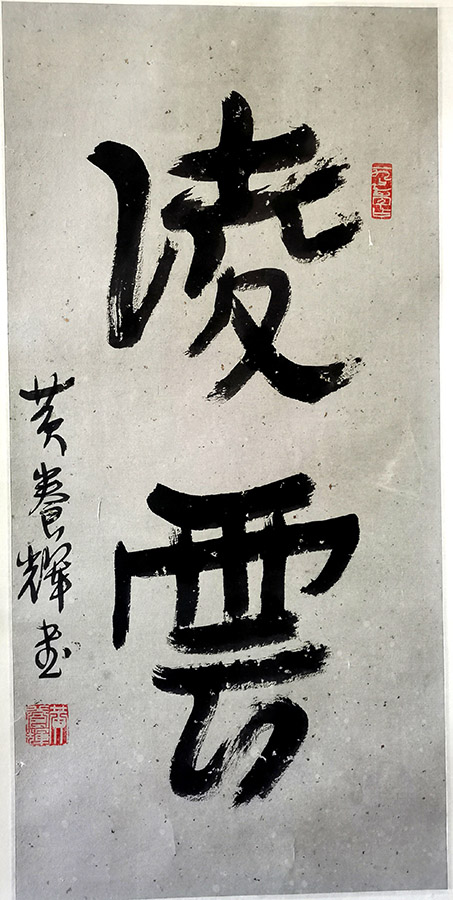 凌雲
黄養輝書